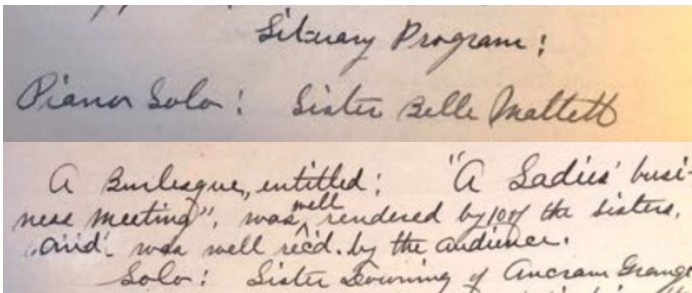 Literary Program:
Piano Solo: Sister Belle Mallett
A Burlesque, entitled: "A Ladies' busi-
ness meeting", was well rendered by 10 of the sisters,
and was well rec'd. by the audience.
Solo: Sister Downing of Ancram Grange